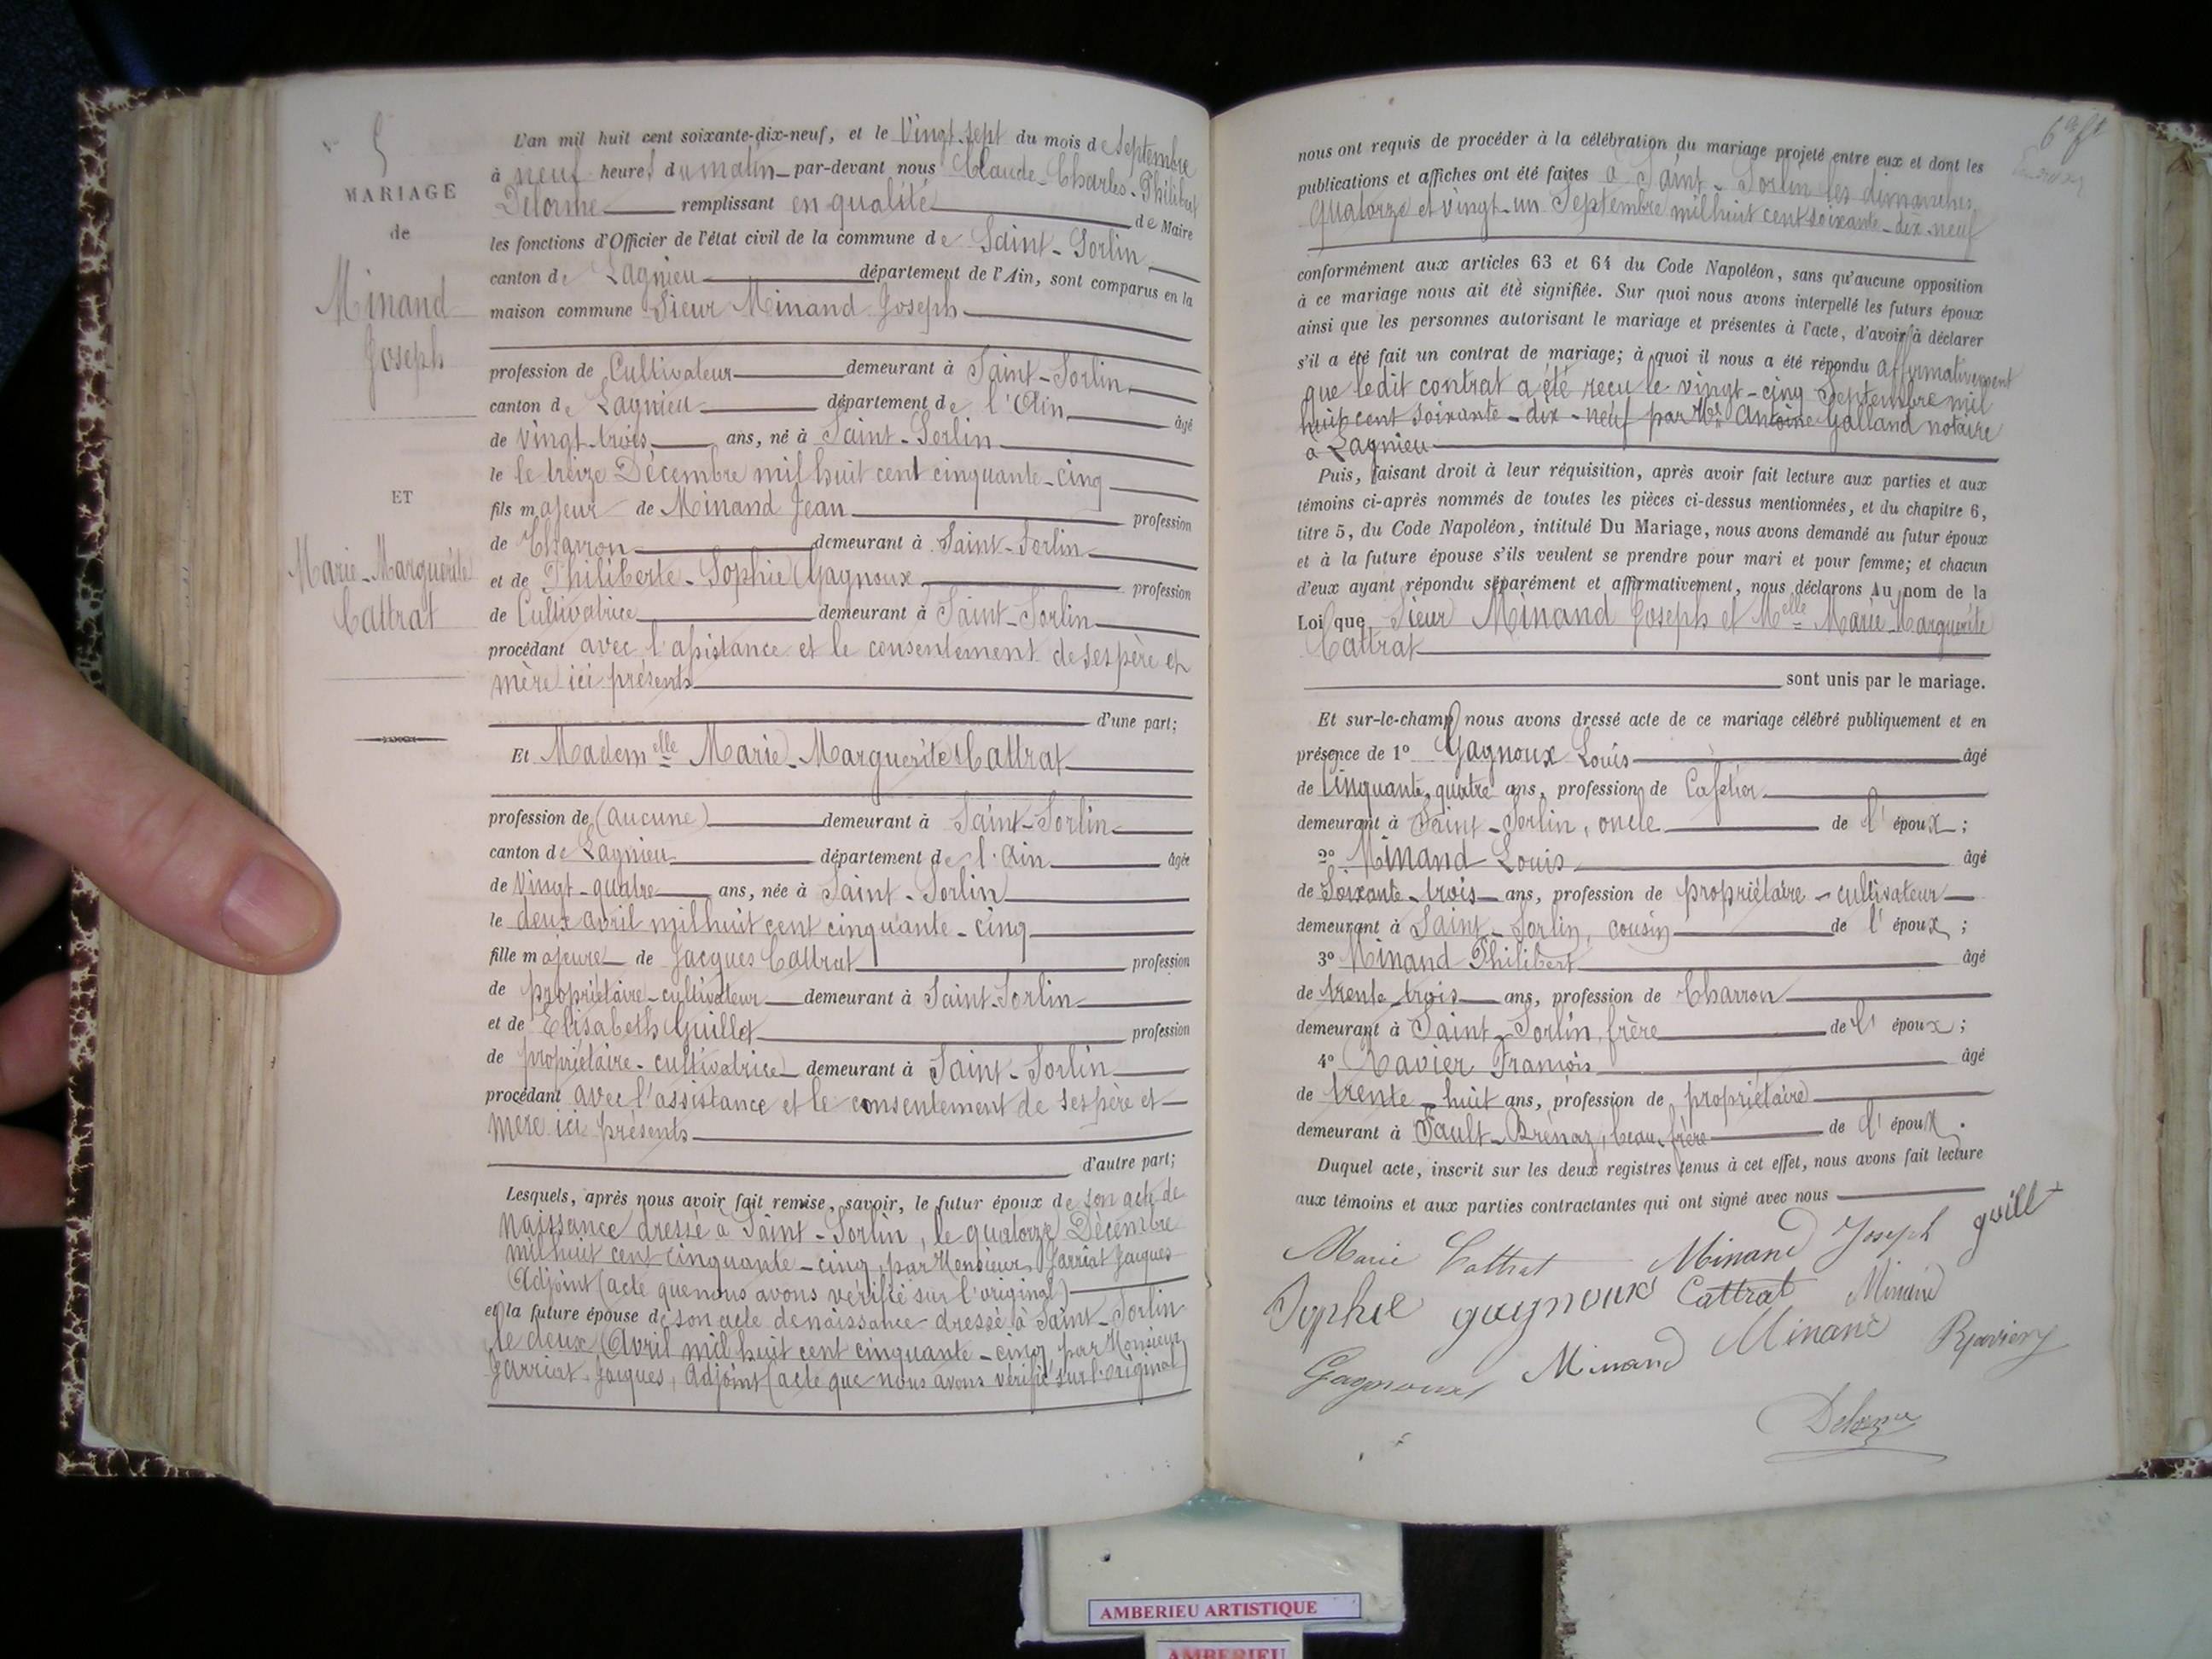 5
MARIAGE
de
Minand
Joseph
ET
Marie-Marguerite
Cattrat
L'an mil huit cent soixante-dix-neuf, et le Vingt-sept du mois de Septembre
à neuf heures du matin par-devant nous Claude-Charles-Philibert
Delorme remplissant en qualité de Maire
les fonctions d'Officier de l'état civil de la commune de Saint-Sorlin
canton de Lagnieu département de l'Ain, sont comparus en la
maison commune Sieur Minand Joseph
profession de Cultivateur demeurant à Saint-Sorlin
canton de Lagnieu département de l'Ain âgé
de vingt-trois ans, né à Saint-Sorlin
le le treize Décembre mil huit cent cinquante-cinq
fils majeur de Minand Jean profession
de Charron demeurant à Saint-Sorlin
et de Philiberte-Sophie Gagnoux profession
de Cultivatrice demeurant à Saint-Sorlin
procédant avec l'assistance et le consentement de ses père et
mère ici présents
d'une part;
Et Madem elle Marie-Marguerite Cattrat
profession de (aucune) demeurant à Saint-Sorlin
canton de Lagnieu département de l'Ain âgée
de Vingt-quatre ans, née à Saint-Sorlin
le deux avril mil huit cent cinquante-cinq
fille majeure de Jacques Cattrat profession
de propriétaire-cultivateur demeurant à Saint-Sorlin
et de Elisabeth Guillet profession
de propriétaire-cultivatrice demeurant à Saint-Sorlin
procédant avec l'assistance et le consentement de ses père et
mère ici présents
d'autre part;
Lesquels, après nous avoir fait remise, savoir, le futur époux de son acte de
naissance dressé à Saint-Sorlin, le quatorze Décembre
mil huit cent cinquante-cinq, par Monsieur Jarriat Jacques
Adjoint (acte que nous avons vérifié sur l'original)
et la future épouse de son acte de naissance dressé à Saint-Sorlin
le deux Avril mil huit cent cinquante-cinq par Monsieur
Jarriat Jacques, Adjoint (acte que nous avons vérifié sur l'original)
nous ont requis de procéder à la célébration du mariage projeté entre eux et dont les
publications et affiches ont été faites à Saint-Sorlin les dimanches
quatorze et vingt-un Septembre mil huit cent soixante-dix-neuf
conformément aux articles 63 et 64 du Code Napoléon, sans qu'aucune opposition
à ce mariage nous ait été signifiée. Sur quoi nous avons interpellé les futurs époux
ainsi que les personnes autorisant le mariage et présentes à l'acte, d'avoir à déclarer
s'il a été fait un contrat de mariage; à quoi il nous a été répondu affirmativement
que ledit contrat a été recu le vingt-cinq Septembre mil
huit cent soixante-dix-neuf par Mr Antoine Galland notaire
à Lagnieu
Puis, faisant droit à leur réquisition, après avoir fait lecture aux parties et aux
témoins ci-après nommés de toutes les pièces ci-dessus mentionnées, et du chapitre 6,
titre 5, du Code Napoléon, intitulé Du Mariage, nous avons demandé au futur époux
et à la future épouse s'ils veulent se prendre pour mari et pour femme; et chacun
d'eux ayant répondu séparément et affirmativement, nous déclarons Au nom de la
Loi que Sieur Minand Joseph et Melle Marie-Marguerite
Cattrat
sont unis par le mariage.
Et sur-le-champ nous avons dressé acte de ce mariage célébré publiquement et en
présence de 1° Gagnoux Louis âgé
de Cinquante-quatre ans, profession de Cafetier
demeurant à Saint-Sorlin, oncle de l'époux;
2° Minand Louis âgé
de Soixante-trois ans, profession de propriétaire-cultivateur
demeurant à Saint-Sorlin, cousin de l'époux;
3° Minand Philibert âgé
de trente-trois ans, profession de Charron
demeurant à Saint-Sorlin, frère de l'époux;
4° Ravier François âgé
de trente-huit ans, profession de propriétaire
demeurant à Sault-Brénaz, beau-frère de l'époux.
Duquel acte, inscrit sur les deux registres tenus à cet effet, nous avons fait lecture
aux témoins et aux parties contractantes qui ont signé avec nous
Marie Cattrat Minand Joseph
Sophie gagnoux Cattrat Minand
Gagnoux Minand Minand
Delorme
AMBERIEU ARTISTIQUE
AMBERIEU